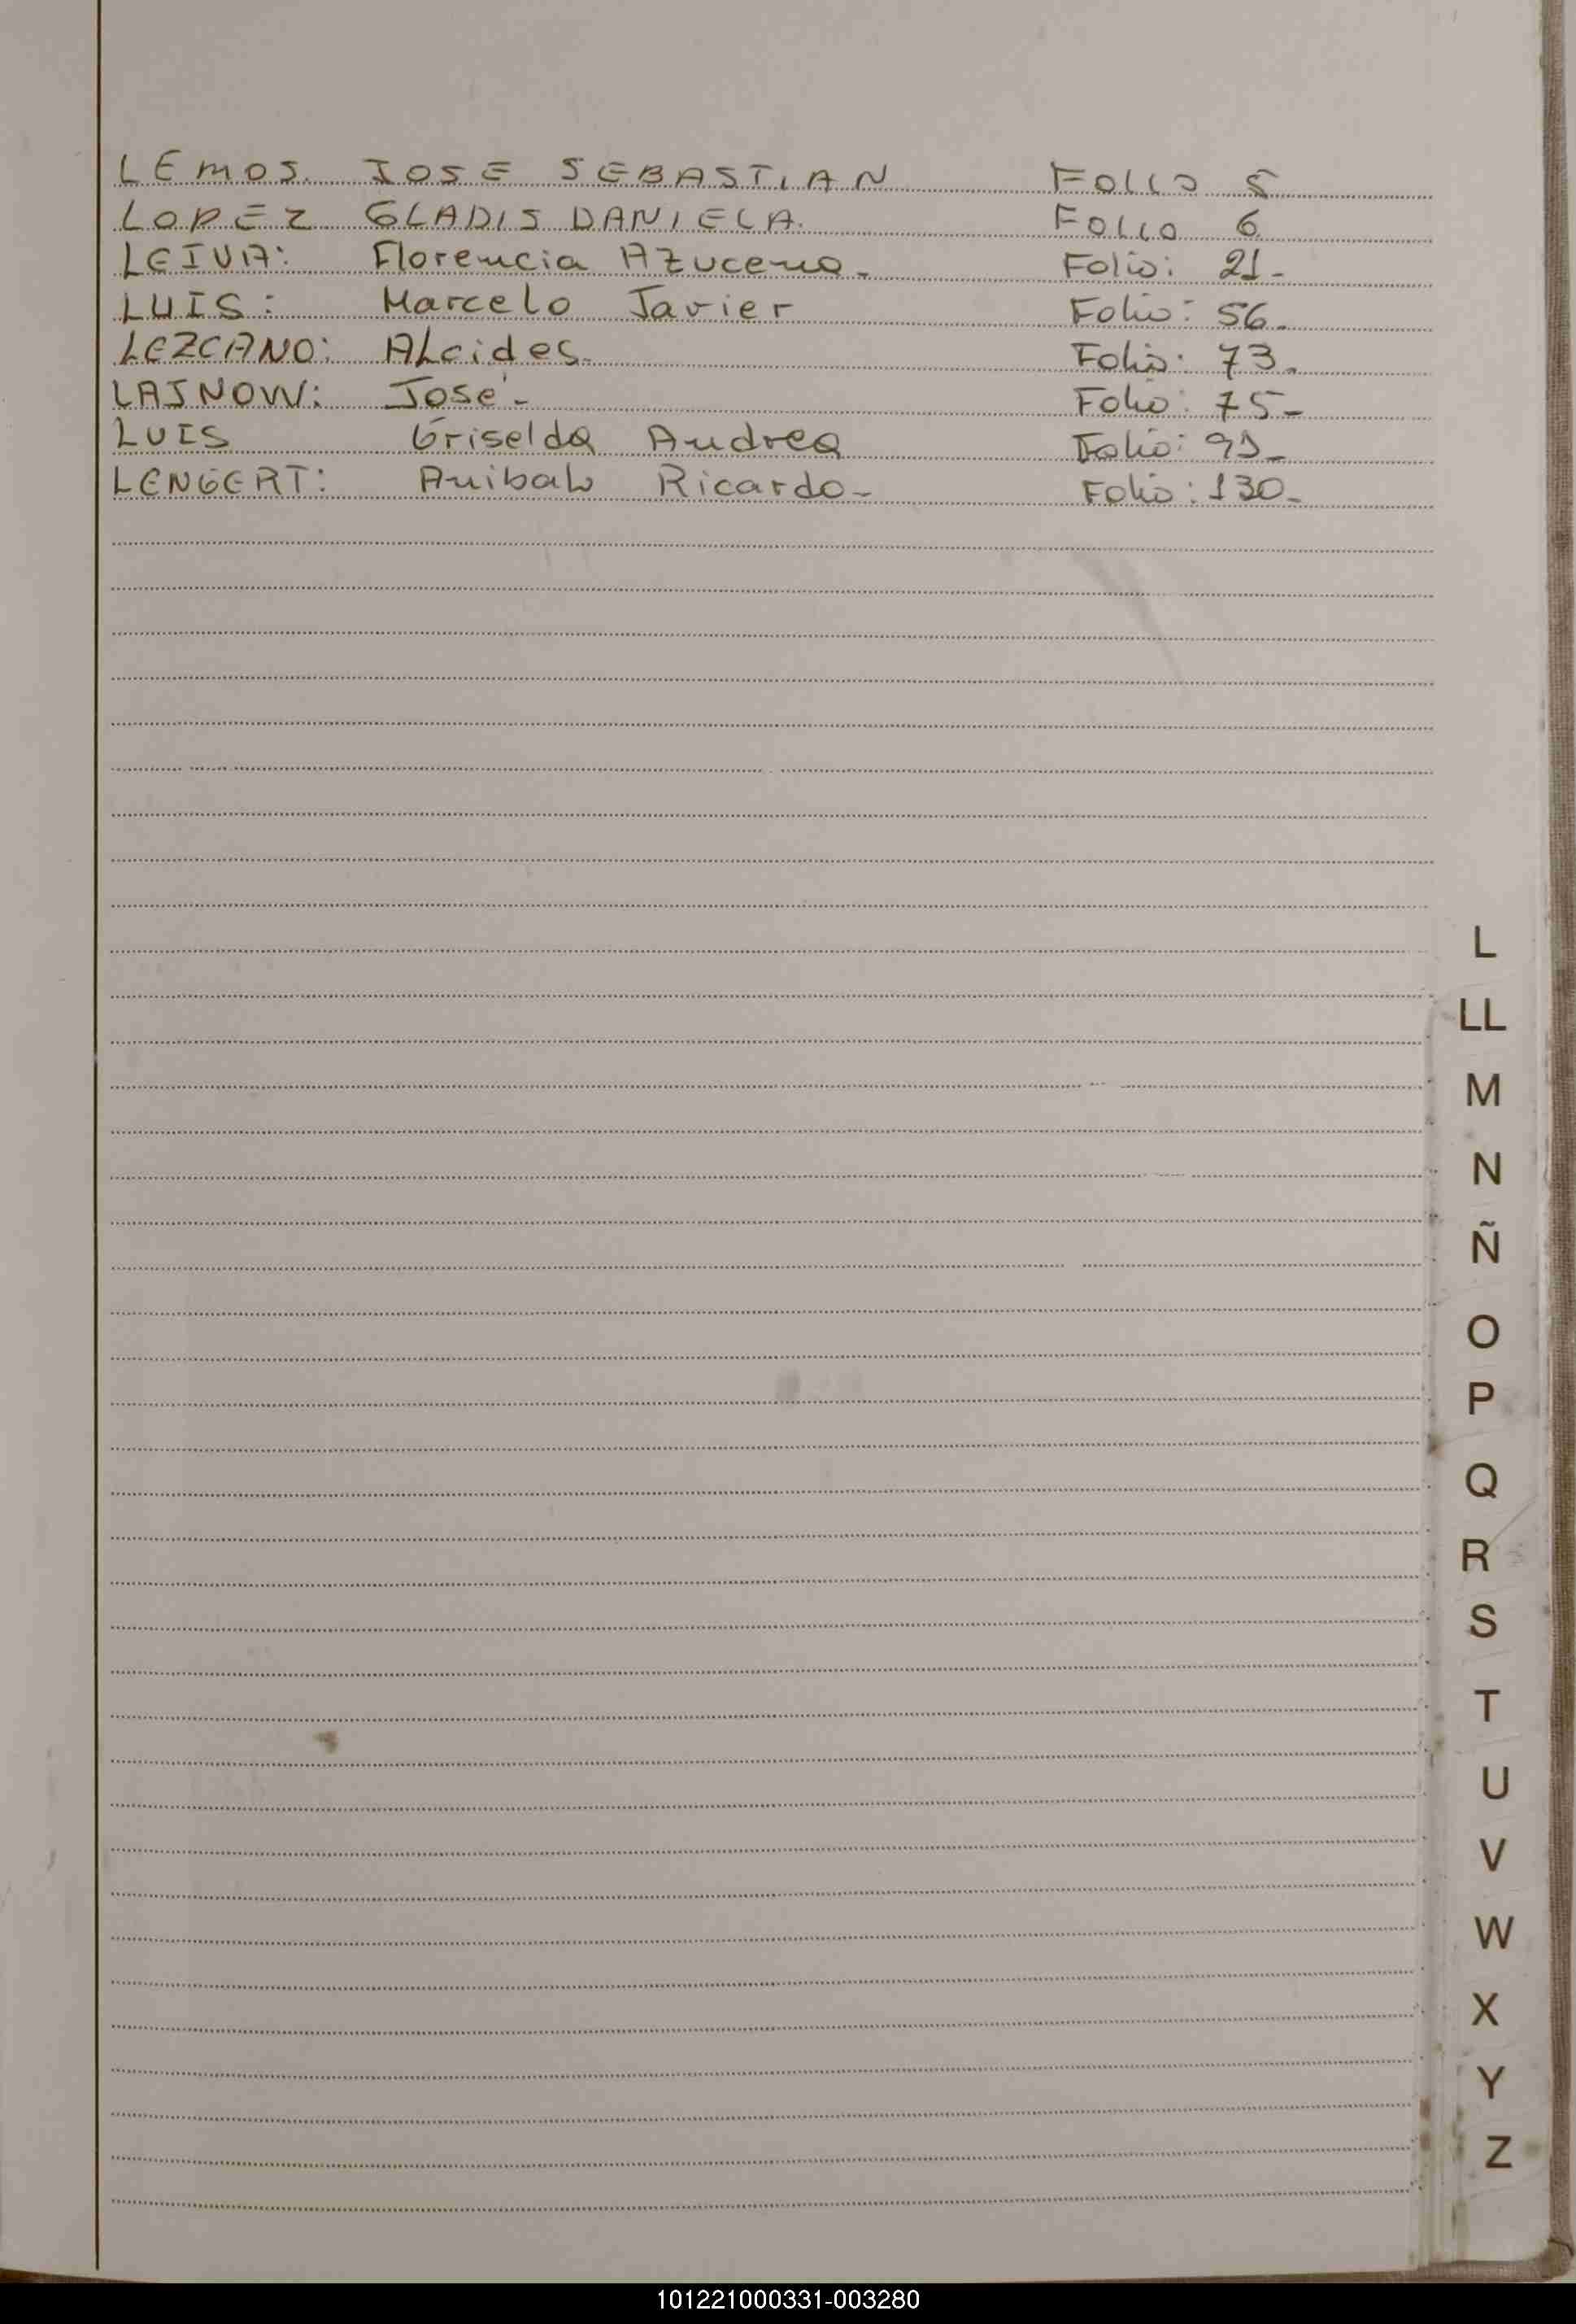 LEMOS. JOSE SEBASTIAN FOLIO 5
LOPEZ GLADIS DANIELA. FOLIO 6
LEIVA: Florencia Azucena- Folio: 21-
LUIS: Marcelo Javier Folio: 56-
LEZCANO: ALcides- Folio: 73-
José- Folio: 75-
LUIS Griselda Andrea Folio:
LENGERT: Anibal Ricardo- Folio: 130-
L
LL
M
N
Ñ
O
P
Q
R
S
T
U
V
W
X
Y
Z
101221000331-003280